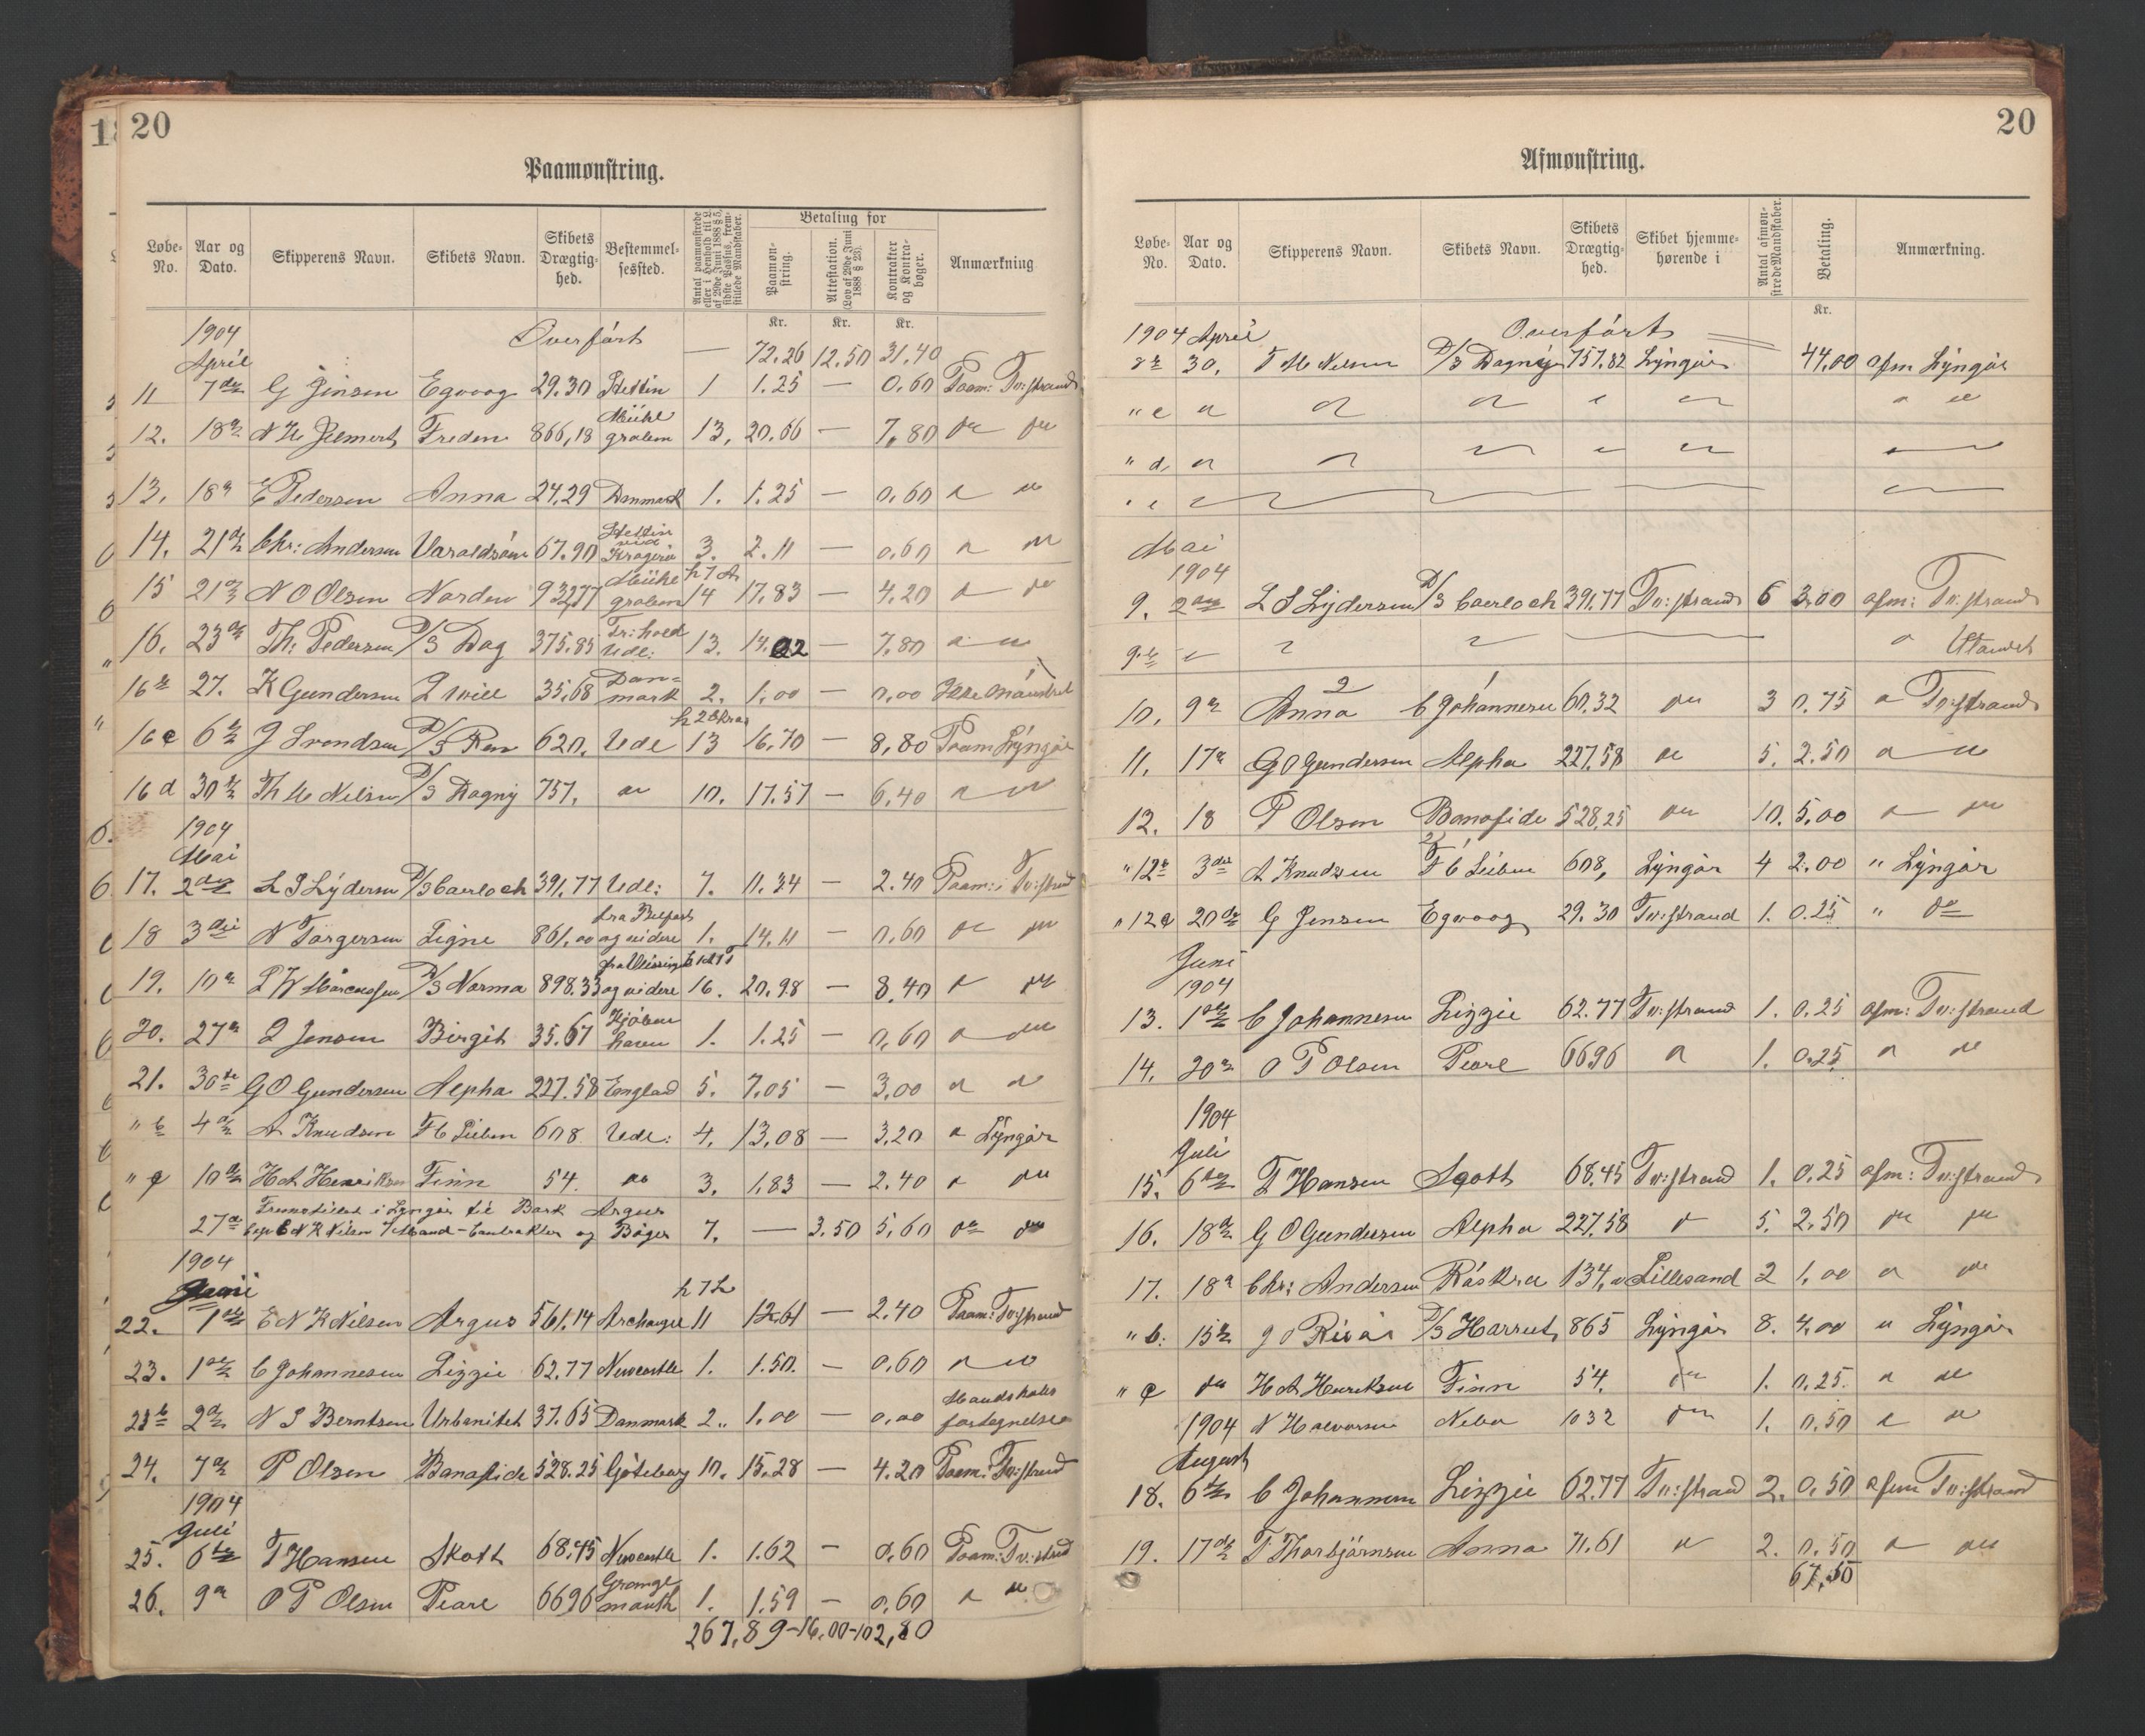 20
Paamønstring.
Løbe-No. Aar og Dato. Skipperens Navn. Skibets Navn. Skibets Drægtighed. Bestemmelsessted. Antal paamønstrede eller i Henhold til L. af 29de Juni 1888 § 5, sidste Passus, fremstillede Mandskaber. Betaling for Paamønstring. Attestation. (Lov af 29de Juni 1888 § 23). Kontrakter og Kontrabøger. Anmærkning
Kr. Kr. Kr.
1904 Overført — 72.26 12.50 31.40
April
11 7de G Jensen Egvoog 29.30 Stettin 1 1.25 — 0.60 Paam: Tv:strand
12. 18 N H Jelmert Freden 866,18 Mühlgraben 13, 20.66 — 7,80 do do
13. 18 E Pedersen Anna 24.29 Danmark 1. 1.25 — 0.60
14. 21 Chr: Andersen Varaldsøen 67.90 Stettin via Kragerø 3. 2.11 — 0.60
15 21 N O Olsen Norden 932,77 Mühlgraben 14 17.83 — 4.20
16. 23 Th: Pedersen D/S Dag 375.85 Udl: 13. 14.02 — 7.80
16b 27. K Gundersen 35,68 Danmark 2. 1.00 — 0,00 Ikke Mønstret
16c 6 J Svendsen D/S Ran 620. Udl 13 16.70 — 8,80 Paam Lyngør
16d 30 Th M Nilsen D/S Dagny 757. 10. 17.57 — 6.40
1904
Mai
17. 2den L S Lydersen D/S Caerloch 391.77 Udl: 7. 11.34 — 2.40 Paam: Tv:strand
18 3die N Torgersen Signe 861,00 fra Belfast og videre 1. 14.11 — 0.60 do do
19. 10 L W D/S Norma 898.33 og videre 16. 20.98 — 8.40
20. 27 J Jensen Birgit 35.67 Kjøbenhavn 1. 1.25 — 0,60
21. 30te G O Gundersen Alpha 227.58 England 5. 7.05 — 3,00
" b 4 A Knudsen F C Sieben 608 Udl: 4. 13.08 — 3,20 Lyngør
" c 10 H A Henriksen Finn 54. do 3. 1.83 — 2.40
Fremstillet i Lyngør til Bark Argus
27 Capt E N K Nilsen 7 Mand - Contrakter og Bøger 7. — 3.50 5,60 do do
1904
Juni
22. 1ste E N K Nilsen Argus 561.14 Archangel 11 12.61 — 2.40 Paam: Tv:strand
23. 1ste C Johannesen Lizzie 62.77 Newcastle 1. 1.50. — 0,60
23b 2 N S Berntsen Urbanitet 37.65 Danmark 2. 1.00 — 0,00 Mandskabsfortegnelse
24. 7 P Olsen Bonafide 528.25 Göteborg 10. 15.28 — 4.20 Paam: Tv:strand
1904
Juli
25. 6te T Hansen Skott 68.45 Newcastle 1. 1.62 — 0,60 Paam: Tv:strand
26. 9 O P Olsen Pearl 6696 Grangemouth 1. 1.59 — 0,60
267,89 - 16,00 - 102,80
20
Afmønstring.
Løbe-No. Aar og Dato. Skipperens Navn. Skibets Navn. Skibets Drægtighed. Skibet hjemmehørende i Antal afmønstrede Mandskaber. Betaling. Anmærkning.
Kr.
1904 April Overført
8b 30. T M Nilsen D/S Dagny 757.82 Lyngør 44.00 afm Lyngør
" c
" d
" e
Mai
1904
9. 2den L S Lydersen D/S Caerloch 391.77 Tv:strand 6 3.00 afm: Tv:strand
9.b
10. 9 Anna C Johannesen 60.32 do 3 0.75 Tv:strand
11. 17 G O Gundersen Alpha 227.58 5. 2.50
12. 18 P Olsen Bonafide 528,25 do 10. 5,00
" 12b 3die A Knudsen F C Sieben 608, Lyngør 4 2.00 " Lyngør
" 12c 20 G Jensen Egvoog 29.30 Tv:strand 1. 0.25 " do
Juni
1904
13. 1ste C Johannesen Lizzie 62.77 Tv:strand 1. 0.25 afm: Tv:strand
14. 20 O P Olsen Pearl 6696 1. 0.25
1904
Juli
15. 6te T Hansen Scott 68.45 Tv:strand 1. 0.25 afm: Tv:strand
16. 18 G O Gundersen Alpha 227.58 5. 2.50 do do
17. 18 Chr: Andersen Röskva 134,00 Lillesand 2 1,00
" b. 15 J O D/S Harriet 865 Lyngør 8. 4.00 Lyngør
" c do H A Henriksen Finn 54. do 1. 0,25.
1904 N Halvorsen Nebo 1032 do 1. 0,50
August
18. 6te C Johannesen Lizzie 62.77 Tv:strand 2. 0.50 afm Tv:strand
19. 17 T Thorbjörnsen Anna 71.61 2. 0,50
67,50